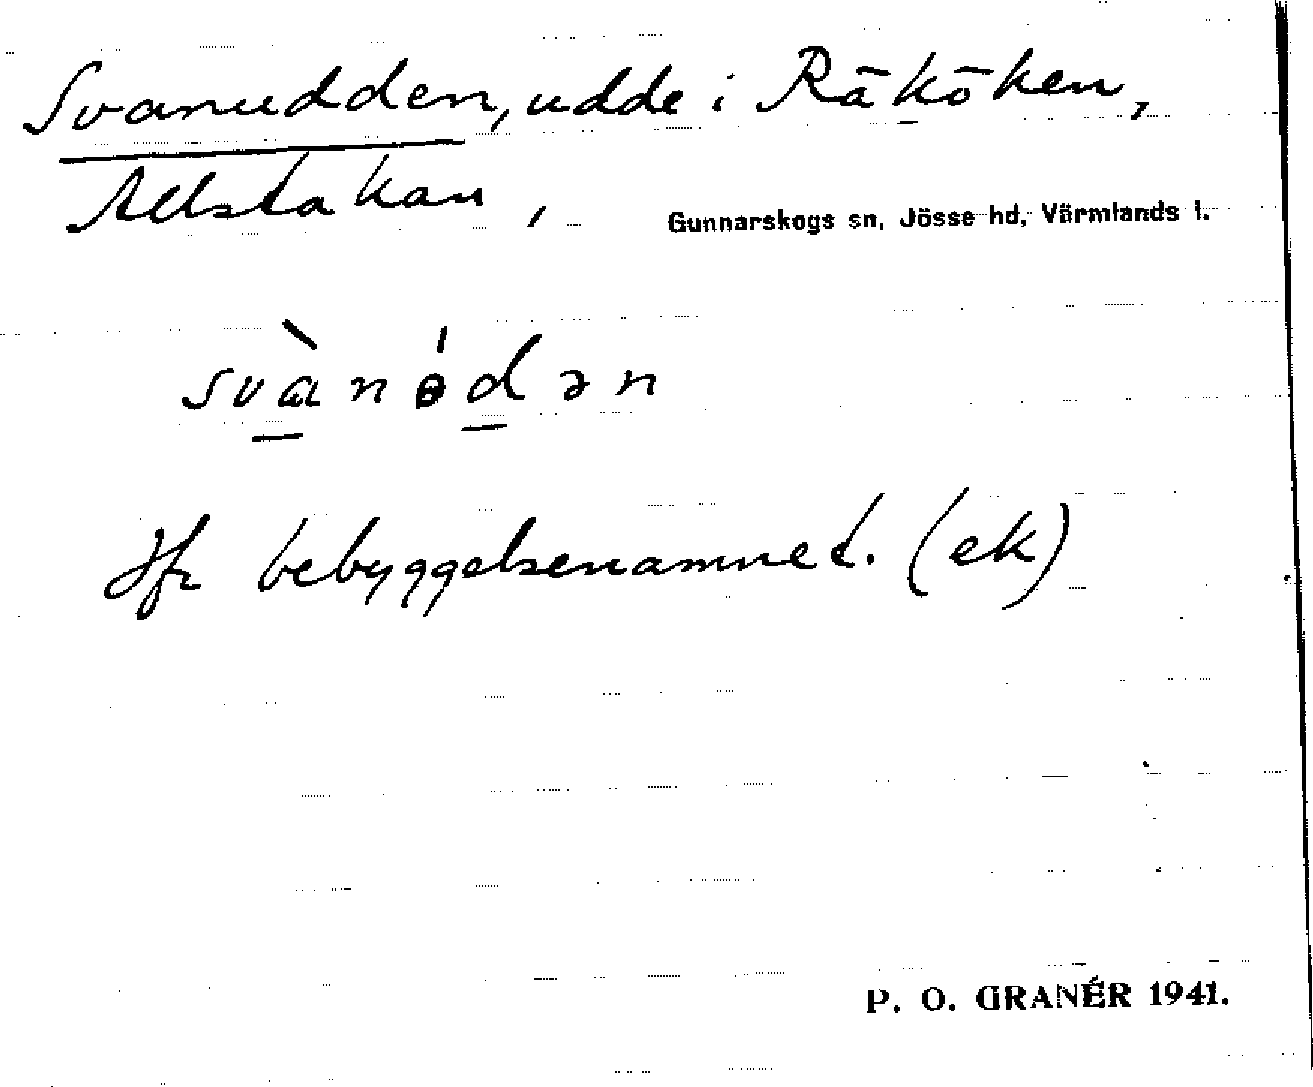 Svanudden, udde i Räköken,
Allstakan,
Gunnarskogs sn, Jösse hd, Värmlands l.
svànɵ́dən
Jfr bebyggelsenamnet. (ek)
P. O. GRANÉR 1941.